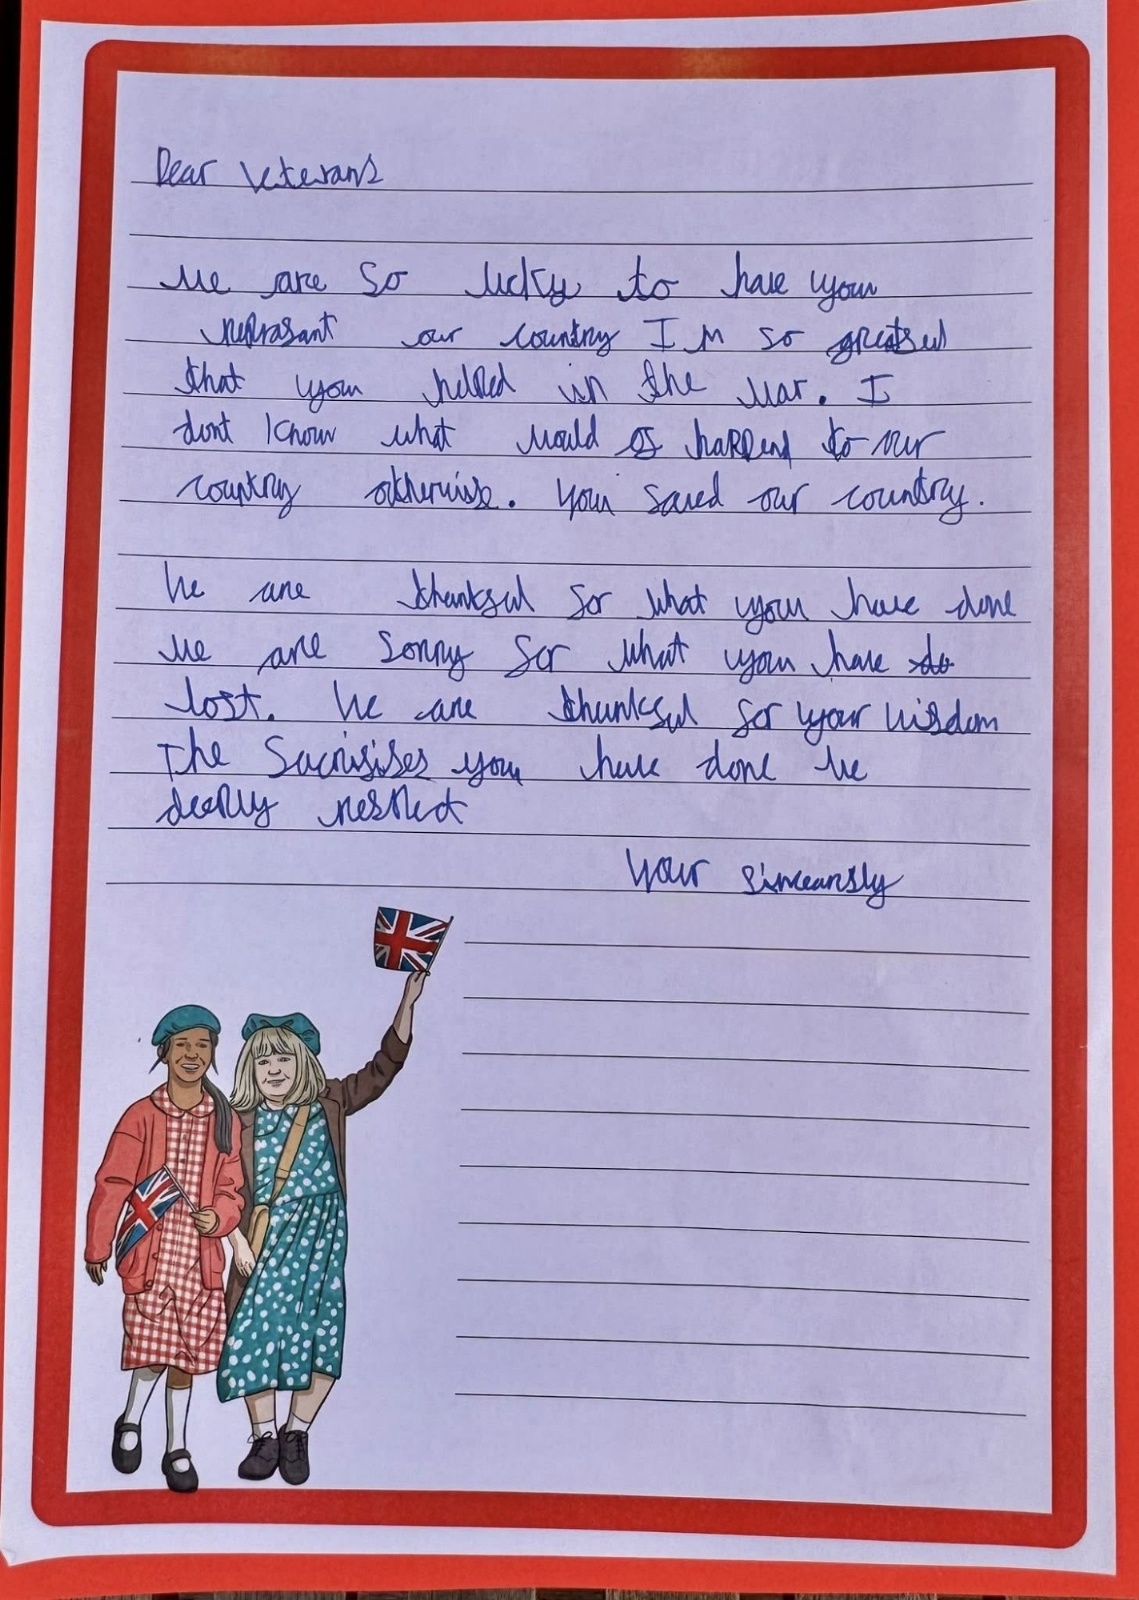 Dear Veterans
We are so lucky to have you
reprasant our country I m so greatful
that you helped in the war. I
dont know what would of happend to our
country otherwise. You saved our country.
We are thankful for what you have done
We are sorry for what you have
lost. We are thankful for your wisdom
The Sacrifises you have done we
deeply respect
Your sinceansly